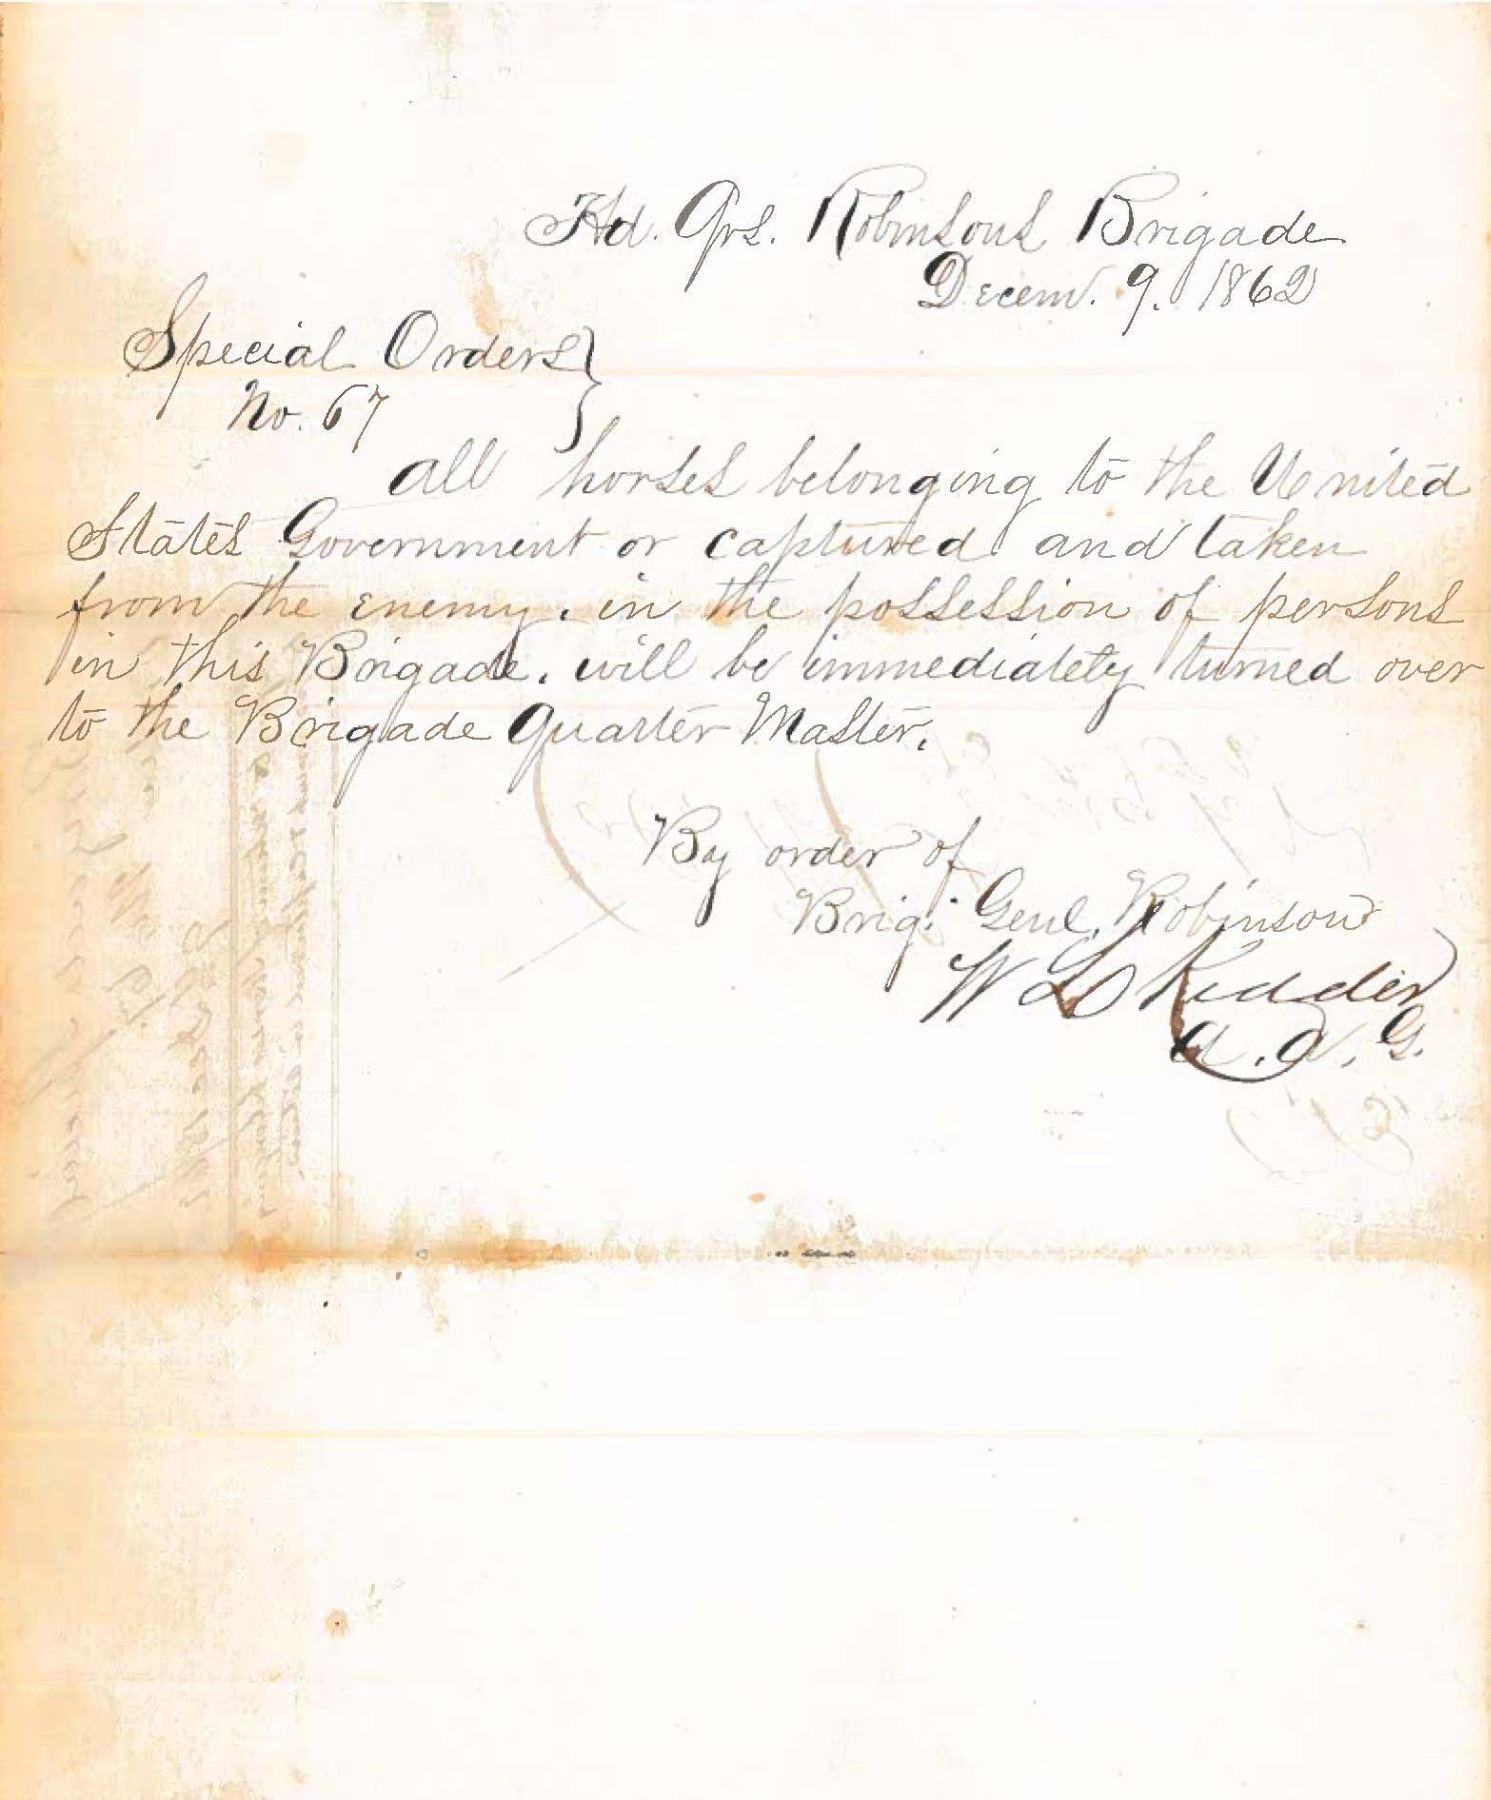 Hd. Qrs. Robinsons Brigade
Decem. 9. 1862
Special Orders }
No. 67
All horses belonging to the United
States Government or captured and taken
from the enemy, in the possession of persons
in this Brigade, will be immediately turned over
to the Brigade Quarter Master.
By order of
Brig. Genl. Robinson
W L Kidder
A. A. G.